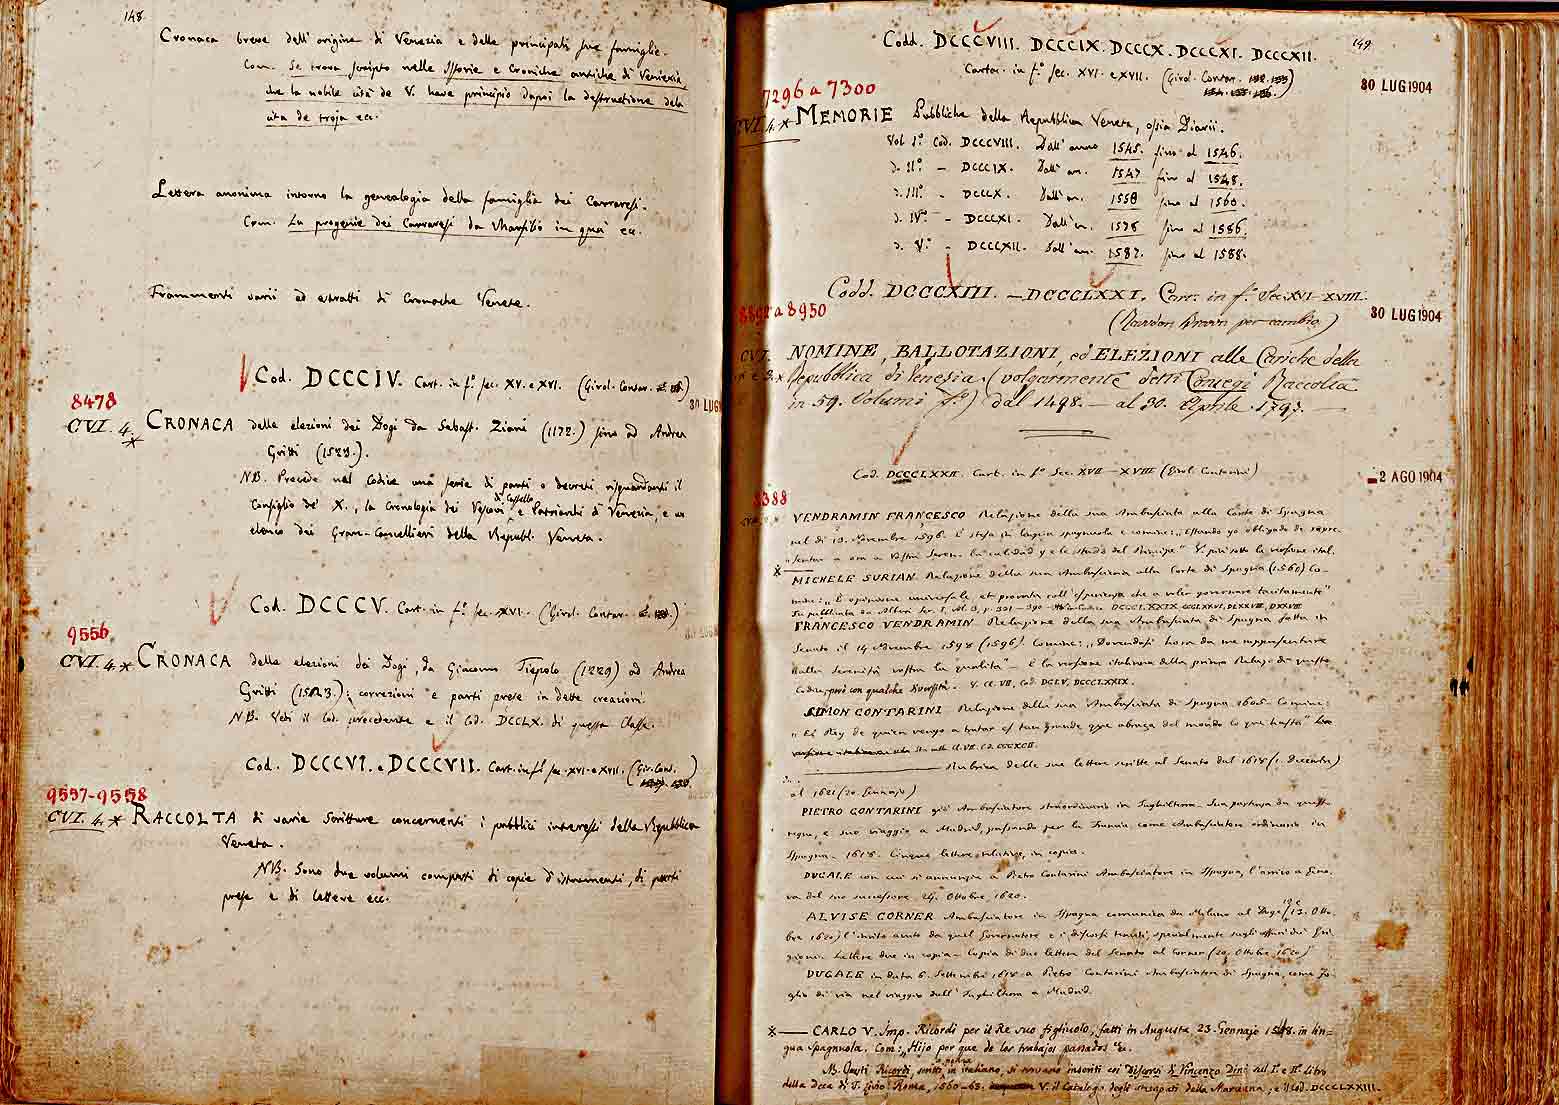 148
Cronaca breve dell'origine di Venezia e delle principali sue famiglie.
Com. Se trova scripto nelle Istorie e Croniche antiche di Veniexia
che la nobile cità de V. have principio dapoi la destructione dela
cita de troja ec.
Lettera anonima intorno la genealogia della famiglia dei Carraresi.
Com. La progenie dei Carraresi da Marsilio in qua ec.
Frammenti varii ed estratti di Cronache Venete.
Cod. DCCCIV. Cart. in f.º sec. XV. e XVI. (Girol. Contar.
30 LUG
8478
CVI. 4. * CRONACA delle elezioni dei Dogi da Sebast. Ziani (1172.) fino ad Andrea
Gritti (1523.).
NB. Precede nel Codice una serie di parti o decreti risguardanti il
Consiglio de' X., la Cronologia dei Vescovi di Castello e Patriarchi di Venezia, e un
elenco dei Gran-Cancellieri della Repubbl. Veneta.
Cod. DCCCV. Cart. in f.º sec. XVI. (Girol. Contar.
9556
CVI. 4. * CRONACA delle elezioni dei Dogi, da Giacomo Tiepolo (1229) ad Andrea
Gritti (1523.); correzioni e parti prese in dette creazioni.
NB. Vedi il Cod. precedente e il Cod. DCCLX. di questa Classe.
Cod. DCCCVI. e DCCCVII. Cart. in f.º sec. XVI. e XVII. (Gir. Cont.
9557-9558
CVI. 4. * RACCOLTA di varie Scritture concernenti i pubblici interessi della Repubblica
Veneta.
NB. Sono due volumi composti di copie d'istrumenti, di parti
prese e di lettere ecc.
149
Codd. DCCCVIII. DCCCIX. DCCCX. DCCCXI. DCCCXII.
Cartac. in f.º sec. XVI. e XVII. (Girol. Contar. 132. 133
134. 135. 136.)
30 LUG 1904
7296 a 7300
CVI. 4. * MEMORIE Pubbliche della Repubblica Veneta, ossia Diarii.
Vol. I.º Cod. DCCCVIII. Dall'anno 1545. fino al 1546.
d. II.º - DCCCIX. Dall'an. 1547 fino al 1548.
d. III.º - DCCCX. Dall'an. 1558 fino al 1560.
d. IV.º - DCCCXI. Dall'an. 1578 fino al 1586.
d. V.º - DCCCXII. Dall'an. 1587. fino al 1588.
Codd. DCCCXIII. - DCCCLXXI. Cart. in f.º Sec. XVI-XVIII.
(Rawdon Brown per cambio.)
30 LUG 1904
8892 a 8950
CVI. NOMINE, BALLOTAZIONI, ed ELEZIONI alle Cariche della
Repubblica di Venezia (volgarmente detti Consegi Raccolta
in 59. Volumi f.º) dal 1498. - al 30. Aprile 1797.
Cod. DCCCLXXII. Cart. in f.º Sec. XVII-XVIII (Girol. Contarini)
2 AGO 1904
8388
VENDRAMIN FRANCESCO Relazione della sua Ambasciata alla Corte di Spagna
nel dì 13. Novembre 1596. È stesa in lingua spagnuola e comincia: „Estando yo obligado de repre-
sentar a
MICHELE SURIAN Relazione della sua Ambasciaria alla Corte di Spagna (1560) Co-
mincia: „È opinione universale et provata coll'esperienza che a voler governare tacitamente"
FRANCESCO VENDRAMIN Relazione della sua Ambasciata di Spagna fatta in
Senato il 14 Decembre 1598 (1596) Comincia: „Dovendosi hora da me rappresentare
alla Serenità vostra la qualità" - È la versione italiana della prima Relaz. di questo
Codice, però con qualche diversità. V. Cl. VII, Cod. DCLV, DCCCLXXIX.
SIMON CONTARINI Relazione della sua Ambasciata di Spagna 1605. Comincia:
„El Rey de quien vengo a tratar es tan grande que abraça del mondo lo que basta"
Rubrica delle sue lettere scritte al Senato dal 1618 (1. Decembre)
al 1621 (20. Gennajo)
PIETRO CONTARINI già Ambasciatore straordinario in Inghilterra. Sua partenza da questo
regno, e suo viaggio a Madrid, passando per la Francia come Ambasciatore ordinario in
Spagna - 1618. Cinque lettere relative, in copia.
DUCALE con cui si annunzia a Pietro Contarini Ambasciatore in Spagna, l'arrivo a Geno-
va del suo successore 24. Ottobre. 1620.
ALVISE CORNER Ambasciatore in Spagna comunica da Milano al Doge (12 e 13. Otto-
bre 1620) l'invito avuto da quel Governatore e i discorsi tenuti, specialmente sugli affari dei Gri-
gioni. Lettere due in copia - Copia di due lettere del Senato al Corner (20. Ottobre 1620)
DUCALE in data 6. Settembre 1618 a Pietro Contarini Ambasciatore di Spagna, come fo-
glio di via nel viaggio dall'Inghilterra a Madrid.
CARLO V. Imp. Ricordi per il Re suo figliuolo, fatti in Augusta 23. Gennajo 1548. in lin-
gua Spagnuola. Com: „Hijo por que de los trabajos passados" &c.
NB. Questi Ricordi, scritti in italiano, si trovano inseriti coi Discorsi di Vincenzo Dini sul I.º e II.º libro
della deca di T. Livio: Roma, 1560-63. V. il Catalogo degli stampati della Marciana; e il Cod. DCCCLXXIII.